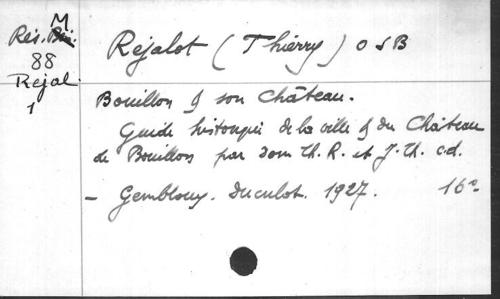 M
Rés. Bin.
88
Rejal.
1
Rejalot (Thierry) O S B
Bouillon & son Château.
Guide historique de la ville & du Château
de Bouillon par Dom Th. R. et J. Th. cd.
- Gembloux. Duculot. 1927. 16°